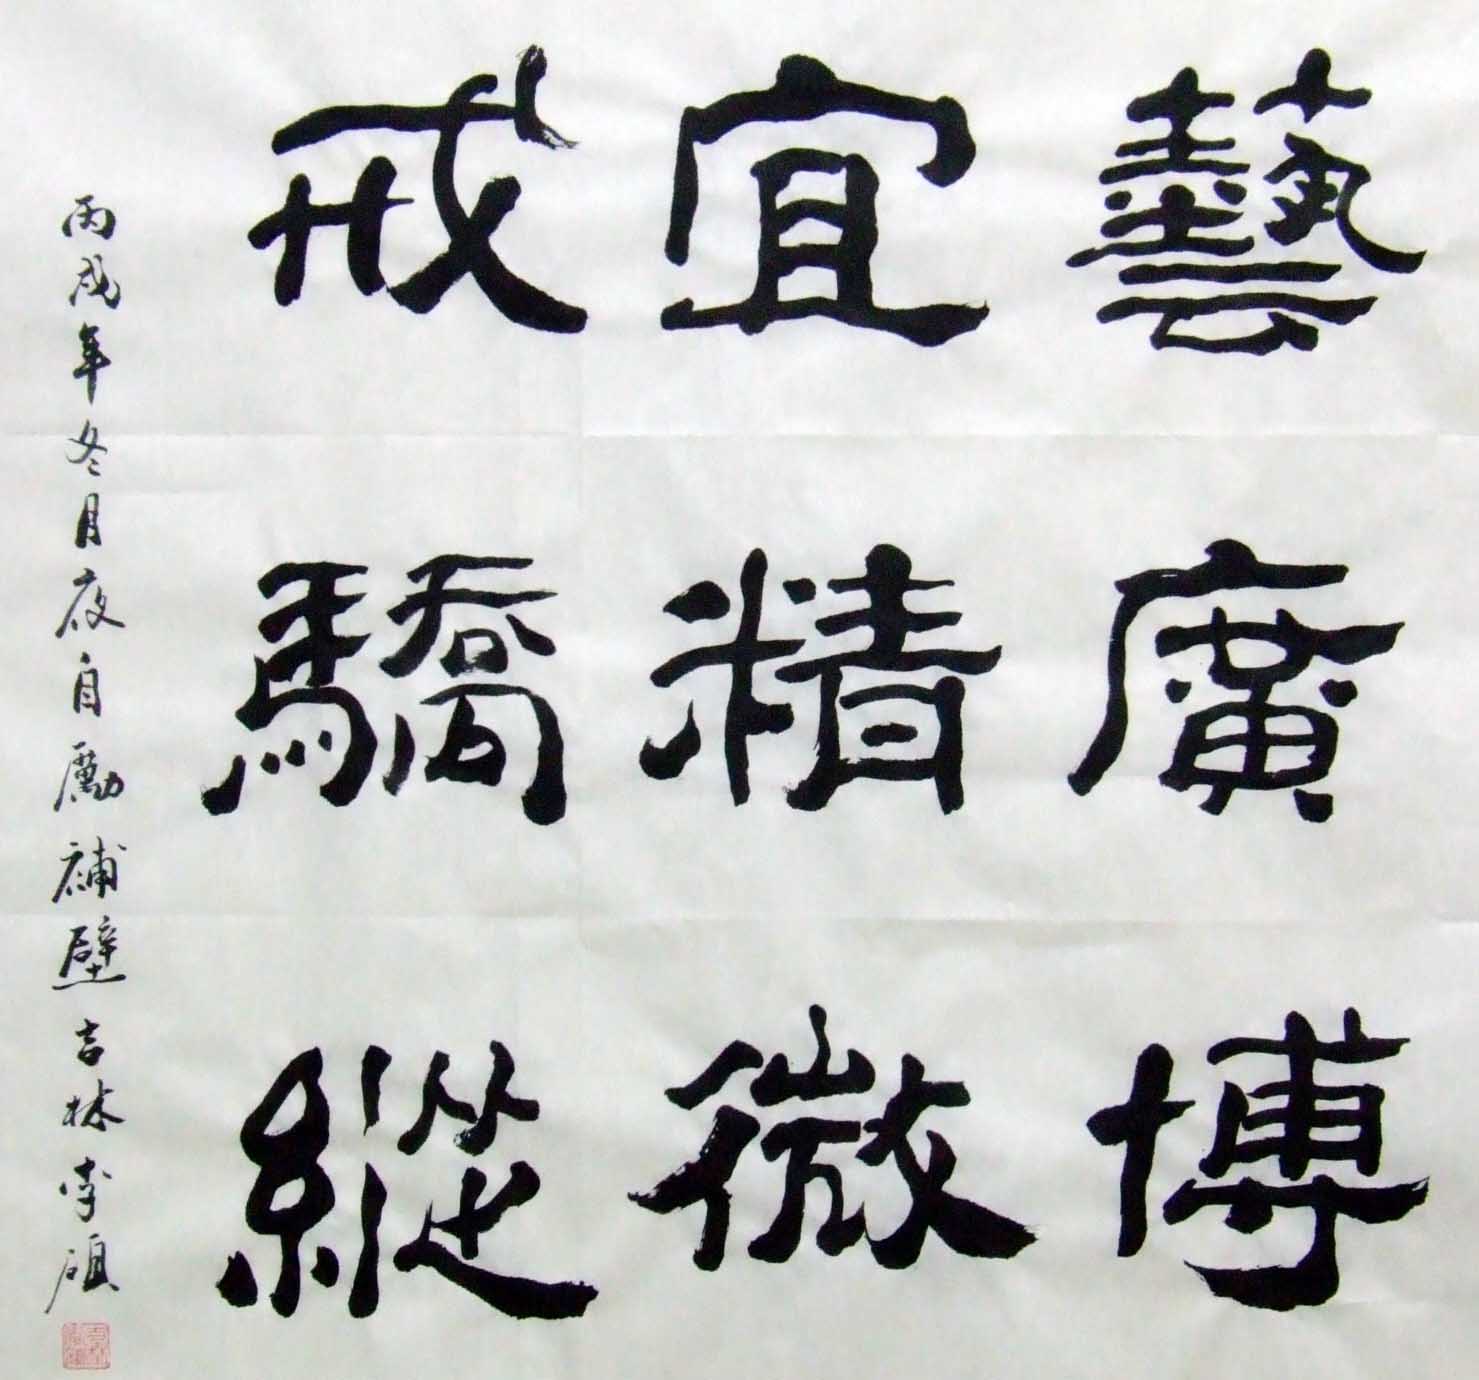 藝廣博
宜精微
戒驕縱
丙戌年冬月夜自勵補壁吉林李碩